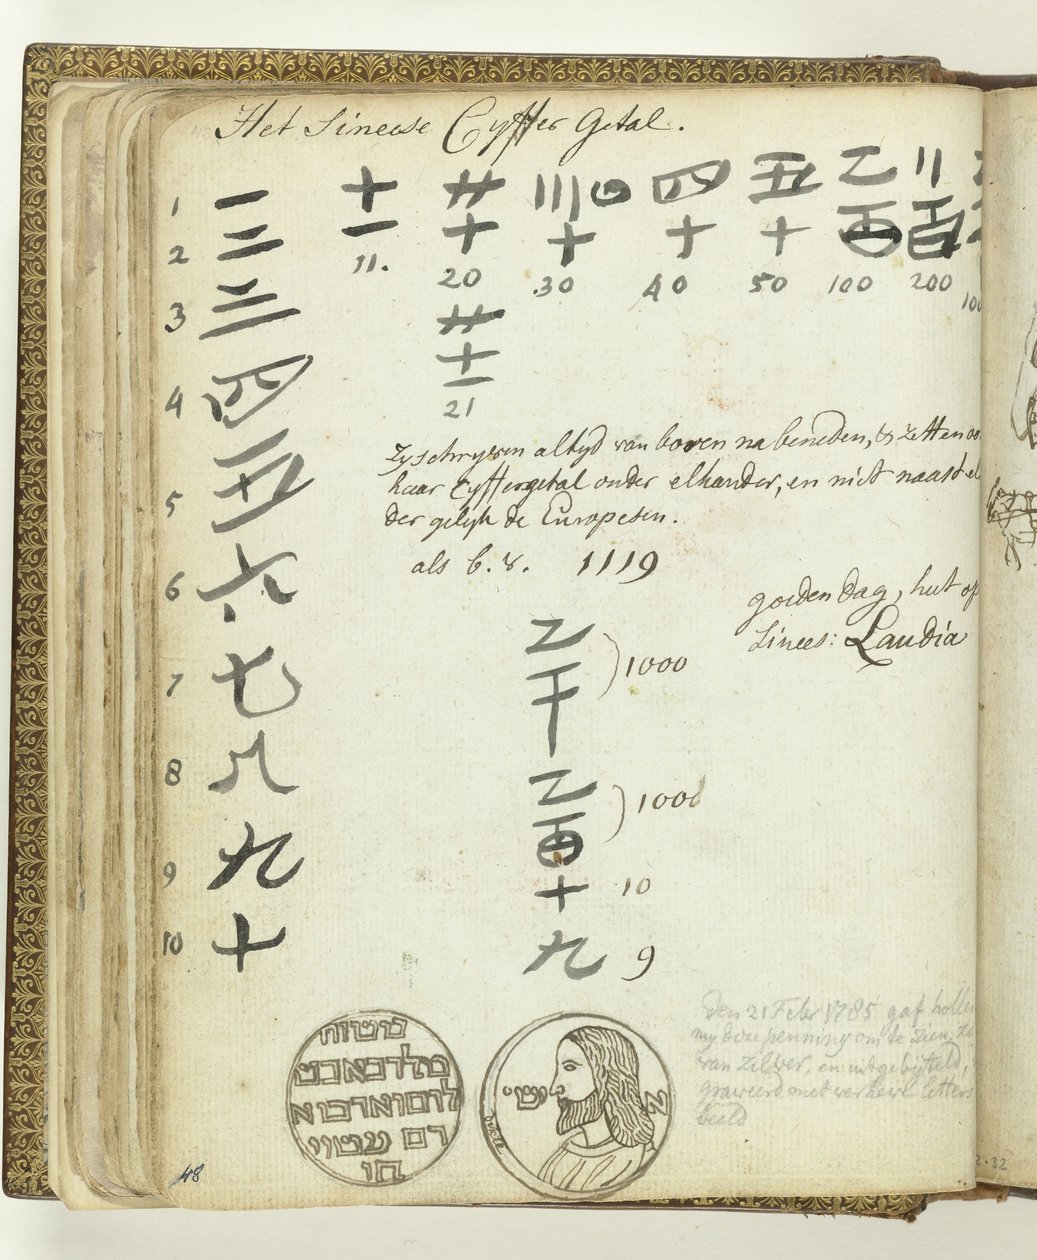 Het Sineese Cyffer getal.
1 一
2 二
3 三
4 四
5 五
6 六
7 七
8 八
9 九
10 十
十
一
11.
廿
十
20
廿
十
一
21
川 四
十
30
四
十
40
五
十
50
乙
百
100
川
百
200
100
Zy schryven altyd van boven na beneden, & zetten oo
haar Cyffergetal onder elkander, en niet naast el
der gelyk de Europesen.
als b. v. 1119
乙
千
1000
乙
百
1000
十 10
九 9
goeden dag, hiet op
Sinees: Laudia
den 21 Febr 1785 gaf hollen
my deze penning om te zien, ze
van zilver, en uitgebytteld,
graveerd met verheve letters
beeld
ישי
א
48
2.32